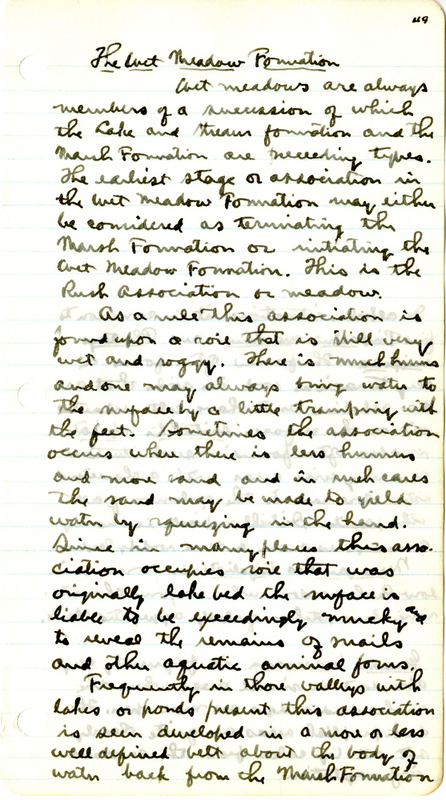 49
The Wet Meadow Formation
Wet meadows are always
members of a succession of which
the Lake and Stream formation and the
Marsh Formation are preceeding types.
The earliest stage or association in
the Wet Meadow Formation may either
be considered as terminating the
Marsh Formation or initiating the
Wet Meadow Formation. This is the
Rush Association or meadow.
As a rule this association is
found upon a soil that is still very
wet and soggy. There is much humus
and one may always bring water to
the surface by a little tramping with
the feet. Sometimes the association
occurs where there is less humus
and more sand and in such cases
the sand may be made to yield
water by squeezing in the hand.
Since in many places this asso-
ciation occupies soil that was
originally lake bed the surface is
liable to be exceedingly "mucky" and
to reveal the remains of snails
and other aquatic animal forms.
Frequently in those valleys with
lakes or ponds present this association
is seen developed in a more or less
well defined belt about the body of
water back from the Marsh Formation